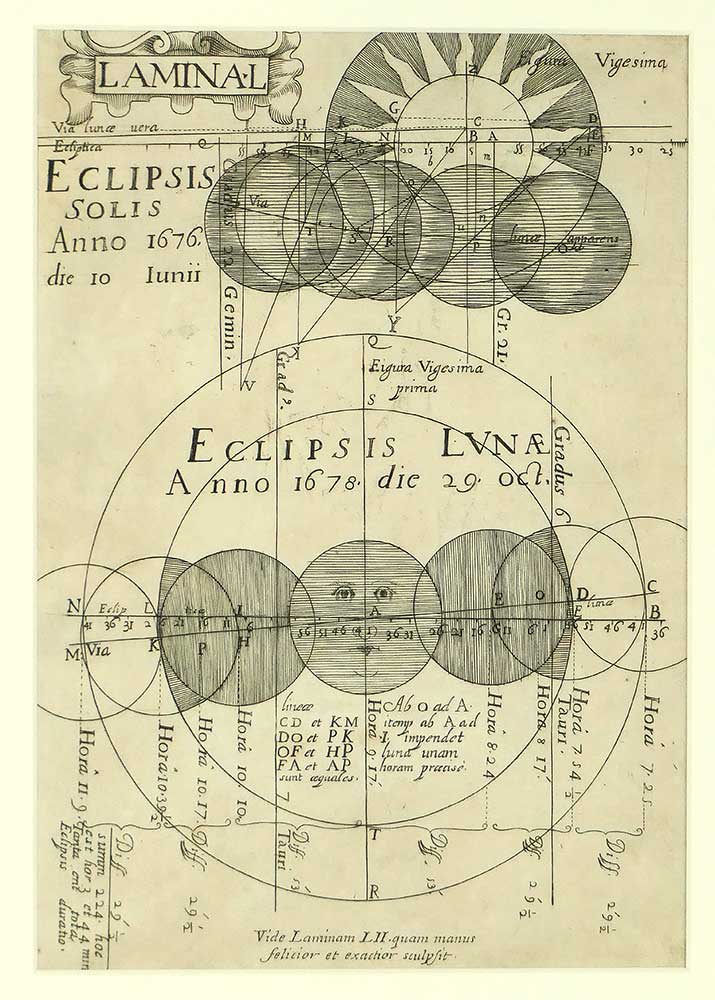 LAMINA·L
Figura Vigesima
Via lunæ vera
Ecliptica
ECLIPSIS
SOLIS
Anno 1676.
die 10 Iunii
Z
G C D
H M K L N B A E F
Q
00 15 10 5 55 35 30 25
Via
T S R P
lunæ apparens
Gradus 22 Gemin.
Gr. 21.
V X Y
Q
Figura Vigesima
prima
S
Grad9.
Gradus 6
ECLIPSIS LVNÆ
Anno 1678. die 29. Oct.
N Eclip L I A E O D lunæ C
41 36 31 26 21 16 11 6 56 51 46 41 36 31 26 21 16 11 6 1 56 51 46 41 36
B
M Via K P H F
lineæ
CD et KM
DO et PK
OF et HP
FA et AP
sunt æquales.
Ab O ad A.
itemp ab A ad
I impendet
luna unam
horam præcisè.
Hora 11. 9.
Hora 10. 39½
Hora 10. 17.
Hora 10. 10.
7 Tauri
Hora 9. 17.
Hora 8. 24
Hora 8 17.
Hora 7 54½
Tauri.
Hora 7. 25.
Diff. 29½
Diff. 29½
Diff. 53
Diff. 53
Diff. 29½
Diff. 29½
T
R
summ 224. hoc
est hor 3 et 44 min
Tanta erit tota
Eclipsis duratio.
Vide Laminam LII. quam manus
felicior et exactior sculpsit.